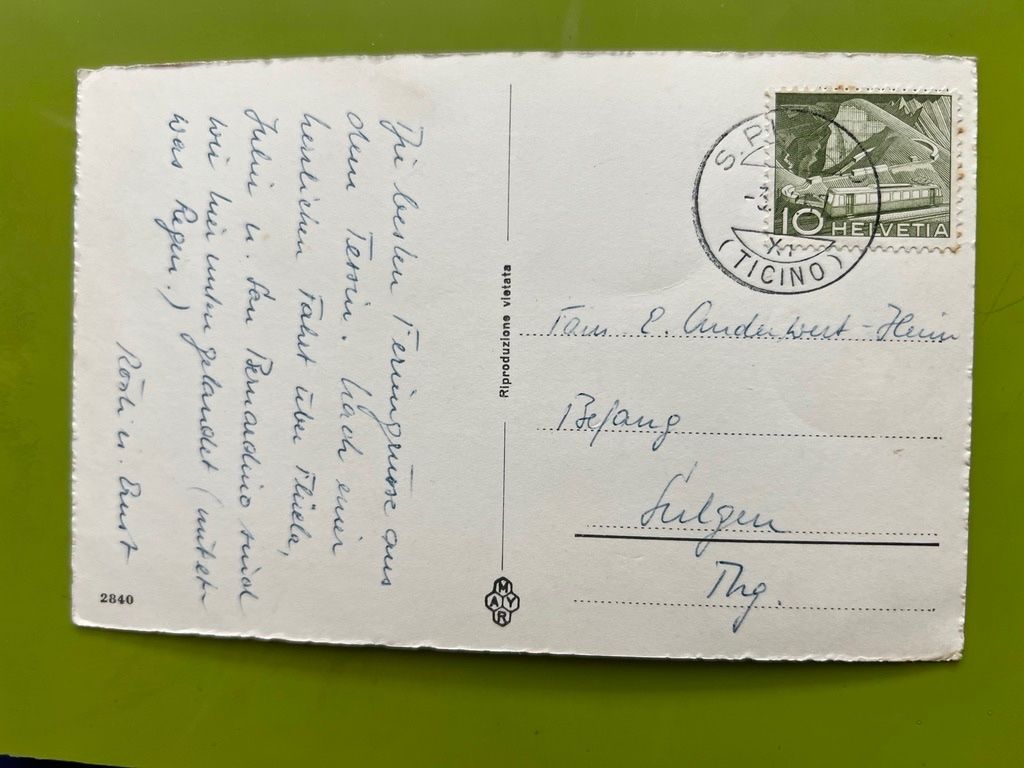 Die besten Feriengrüsse aus
dem Tessin. Nach einer
herrlichen Fahrt über Flüela,
Julier u. San Bernardino sind
wir hier unten gelandet (mitsamt
was Regen.)
Rösli u. Ernst
2840
Riproduzione vietata
MAYR
S. PI
XII
(TICINO)
10 HELVETIA
Fam. E. Anderwert-Heim
Befang
Sulgen
Thg.